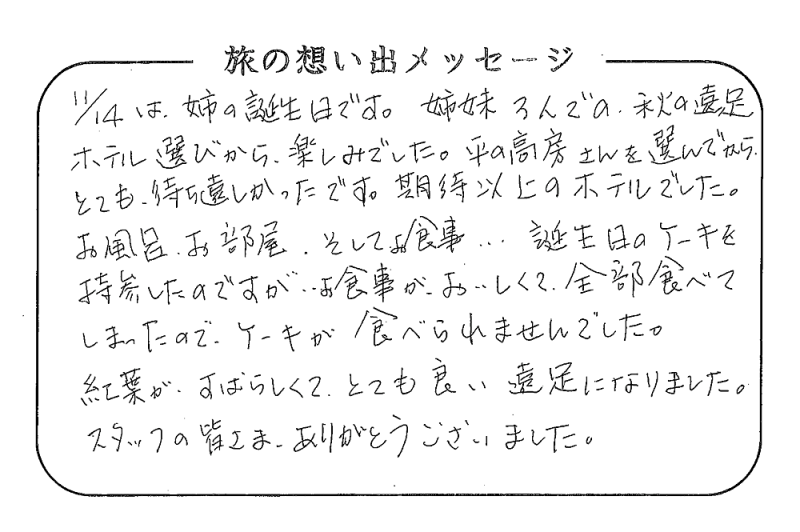 旅の想い出メッセージ
11/14は、姉の誕生日です。姉妹3人での、秋の遠足
ホテル選びから、楽しみでした。平の高房さんを選んでから、
とても、待ち遠しかったです。期待以上のホテルでした。
お風呂、お部屋、そしてお食事… 誕生日のケーキを
持参したのですが…お食事が、おいしくて、全部食べて
しまったので、ケーキが食べられませんでした。
紅葉が、すばらしくて、とても良い遠足になりました。
スタッフの皆さま、ありがとうございました。